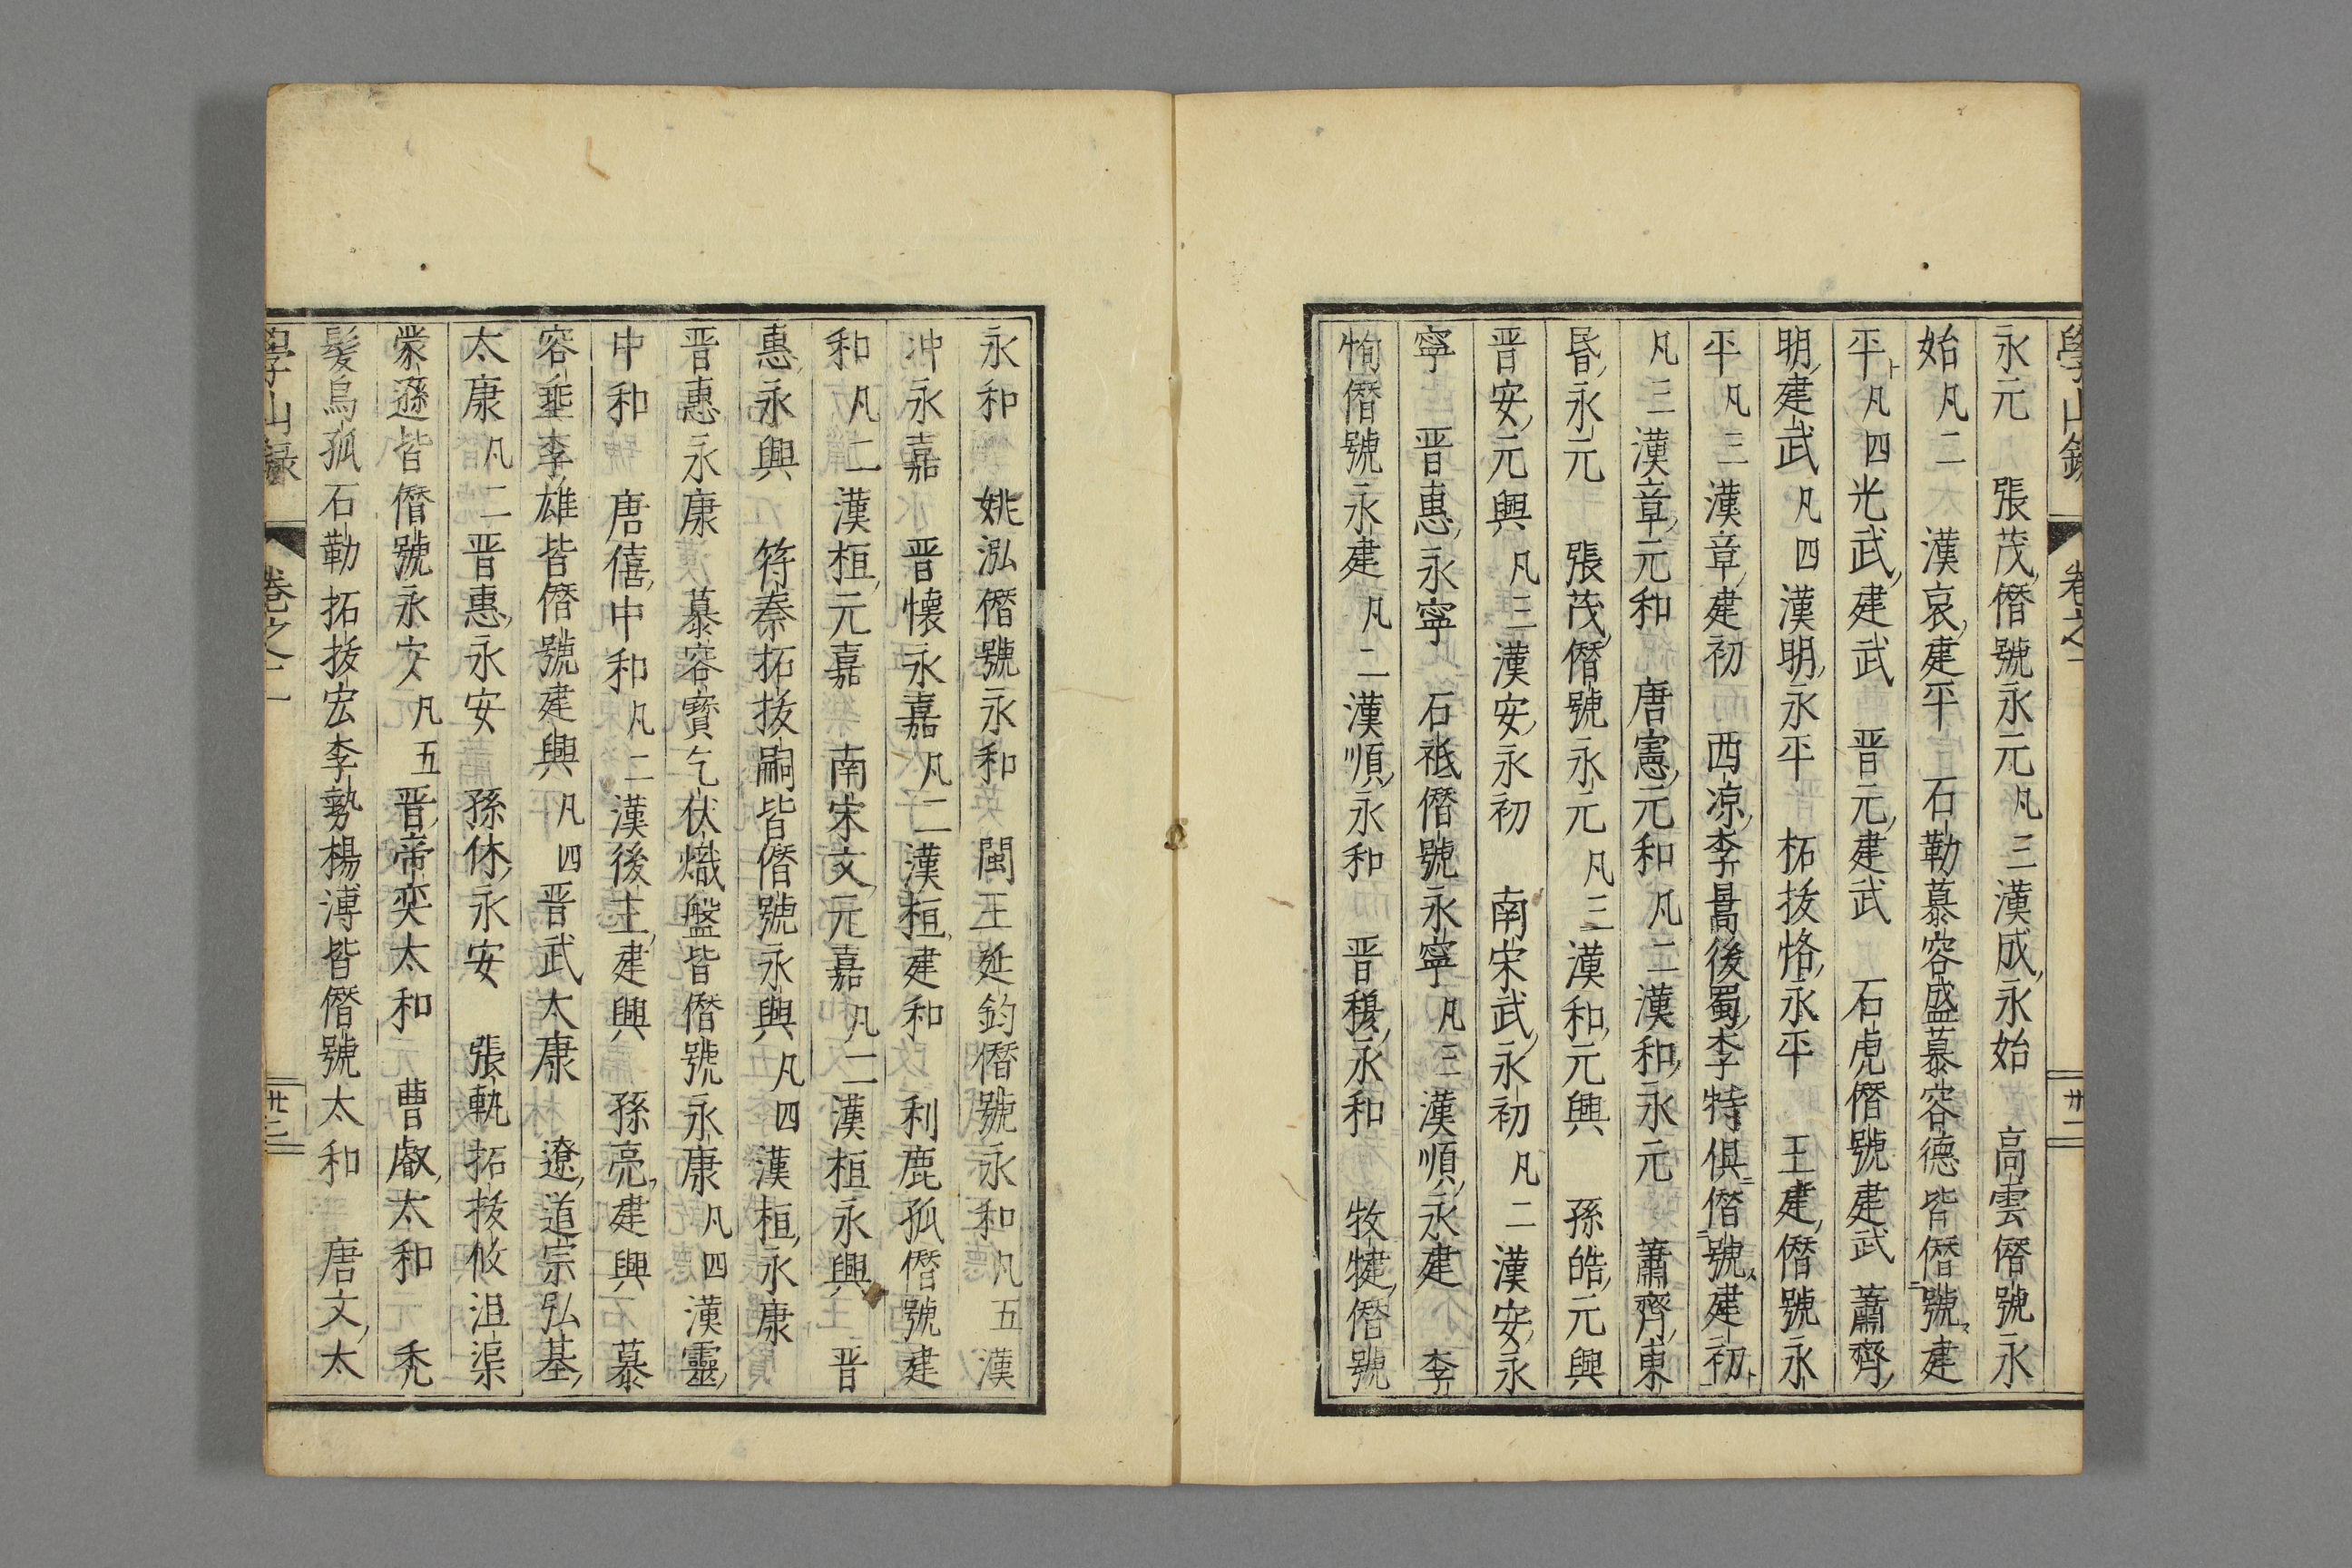 學山錄 卷之一 卅二
永元 張茂僭號永元凡三漢成永始 高雲僭號永
始凡二 漢哀建平 石勒慕容盛慕容德皆僭號建
平凡四光武建武 晋元建武 石虎僭號建武 蕭齊
明建武凡四漢明永平 柘拔恪永平 王建僭號永
平凡三漢章建初 西凉李暠後蜀李特俱僭號建初
凡三漢章元和 唐憲元和凡二漢和永元 蕭齊東
昏永元 張茂僭號永元凡三漢和元興 孫皓元興
晋安元興凡三漢安永初 南宋武永初凡二漢安永
寧 晋惠永寧 石祗僭號永寧凡三漢順永建 李
恂僭號永建凡二漢順永和 晋穆永和 牧犍僭號
永和 姚泓僭號永和 閩王延鈞僭號永和凡五漢
冲永嘉 晋懷永嘉凡二漢桓建和 利鹿孤僭號建
和凡二漢桓元嘉 南宋文元嘉凡二漢桓永興 晋
惠永興 符秦拓拔嗣皆僭號永興凡四漢桓永康
晋惠永康 慕容寶乞伏熾盤皆僭號永康凡四漢靈
中和 唐僖中和凡二漢後主建興 孫亮建興 慕
容垂李雄皆僭號建興凡四晋武太康 遼道宗弘基
太康凡二晋惠永安 孫休永安 張軌拓拔攸沮渠
蒙遜皆僭號永安凡五晋帝奕太和 曹叡太和 秃
髮烏孤石勒拓拔宏李勢楊溥皆僭號太和 唐文太
學山錄 卷之一 卅二